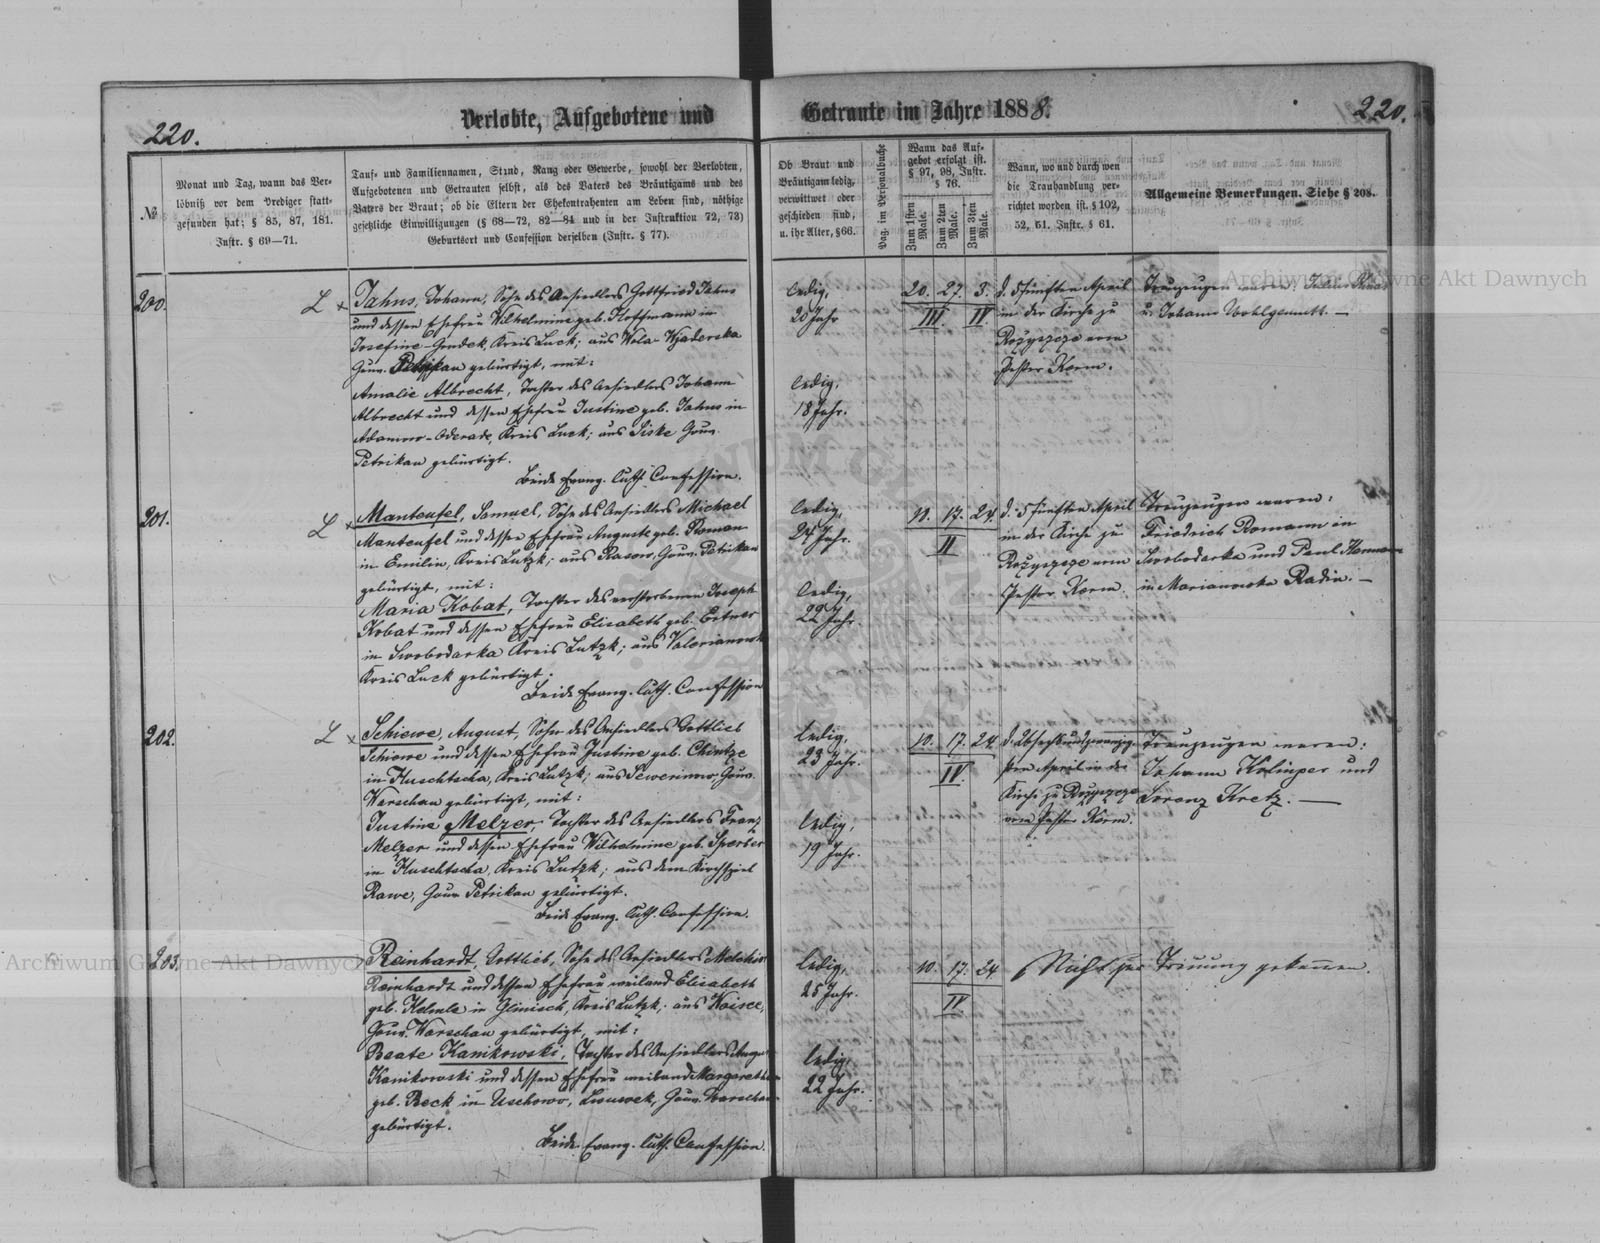 220.
Verlobte, Aufgebotene und
Getraute im Jahre 1888.
220.
№
Monat und Tag, wann das Ver-
löbniß vor dem Prediger statt-
gefunden hat; § 85, 87, 181.
Instr. § 69—71.
Tauf- und Familiennamen, Stand, Rang oder Gewerbe, sowohl der Verlobten,
Aufgebotenen und Getrauten selbst, als des Vaters des Bräutigams und des
Vaters der Braut; ob die Eltern der Ehekontrahenten am Leben sind, nöthige
gesetzliche Einwilligungen (§ 68—72, 82—84 und in der Instruktion 72, 73)
Geburtsort und Confession derselben (Instr. § 77).
Ob Braut und
Bräutigam ledig,
verwittwet oder
geschieden sind,
u. ihr Alter, § 66.
Pag. im Personalbuche
Wann das Auf-
gebot erfolgt ist.
§ 97, 98, Instr.
§ 76.
Zum 1sten Male.
Zum 2ten Male.
Zum 3ten Male.
Wann, wo und durch wen
die Trauhandlung ver-
richtet worden ist. § 102,
52, 51. Instr. § 61.
Allgemeine Bemerkungen. Siehe § 208.
200.
L x
Jahns, Johann, Sohn des Ansiedlers Gottfried Jahns
und dessen Ehefrau Wilhelmine geb. Hoffmann in
Josefine-Grudek, Kreis Luck; aus Wola
Gouv. Petrikau gebürtigt, mit:
Amalie Albrecht, Tochter des Ansiedlers Johann
Albrecht und dessen Ehefrau Justine geb. Jahns in
Adamow-Oderade, Kreis Luck; aus Siske Gouv.
Petrikau gebürtigt.
Beide Evang. Luth. Confession.
ledig,
20 Jahr
ledig,
18 Jahr.
20. 27. 3.
III IV.
d. 5 fünften April
in der Kirche zu
Rozyszcze vom
Pastor Kerm.
Trauzeugen waren:
u. Johann Wohlgemuth. —
201.
L x
Manteufel, Samuel, Sohn des Ansiedlers Michael
Manteufel und dessen Ehefrau Auguste geb. Roman
in Emilin, Kreis Lutzk; aus Rasow, Gouv. Petrikau
gebürtigt, mit:
Maria Kobat, Tochter des verstorbenen Joseph
Kobat und dessen Ehefrau Elisabeth geb.
in Swobodarka Kreis Lutzk; aus
Kreis Luck gebürtigt.
Beide Evang. Luth. Confession
ledig,
24 Jahr.
ledig,
22 Jahr.
17. 24.
II
d. 5 fünften April
in der Kirche zu
Rozyszcze vom
Pastor Kerm.
Trauzeugen waren:
Friedrich Romann in
Swobodarka und Paul
in Marianowka Radin. —
202.
L x
Schiewe, August, Sohn des Ansiedlers Gottlieb
Schiewe und dessen Ehefrau Justine geb. Chintze
in Kuschtscha, Kreis Lutzk; aus Sewerinow, Gouv.
Warschau gebürtigt, mit:
Justine Melzer, Tochter des Ansiedlers Franz
Melzer und dessen Ehefrau Wilhelmine geb. Sperber
in Kuschtscha, Kreis Lutzk; aus dem Kirchspiel
Rawe, Gouv. Petrikau gebürtigt.
Beide Evang. Luth. Confession.
ledig,
23 Jahr.
ledig,
19 Jahr.
10. 17. 24.
IV.
d. 26 sechsundzwanzig-
sten April in der
Kirche zu Rozyszcze
vom Pastor Kerm.
Trauzeugen waren:
Johann und
Lorenz Kretz. —
203.
Reinhardt, Gottlieb, Sohn des Ansiedlers Melchior
Reinhardt und dessen Ehefrau weiland Elisabeth
geb. in Kreis Lutzk; aus
Gouv. Warschau gebürtigt, mit:
Beate Kanikowski, Tochter des Ansiedlers
Kanikowski und dessen Ehefrau weiland
geb. Beck in Gouv. Warschau
gebürtigt.
Beide Evang. Luth. Confession.
ledig,
25 Jahr.
ledig,
22 Jahr.
10. 17. 24
IV.
Nicht zur Trauung gekommen.
Archiwum Główne Akt Dawnych
Archiwum Główne Akt Dawnych